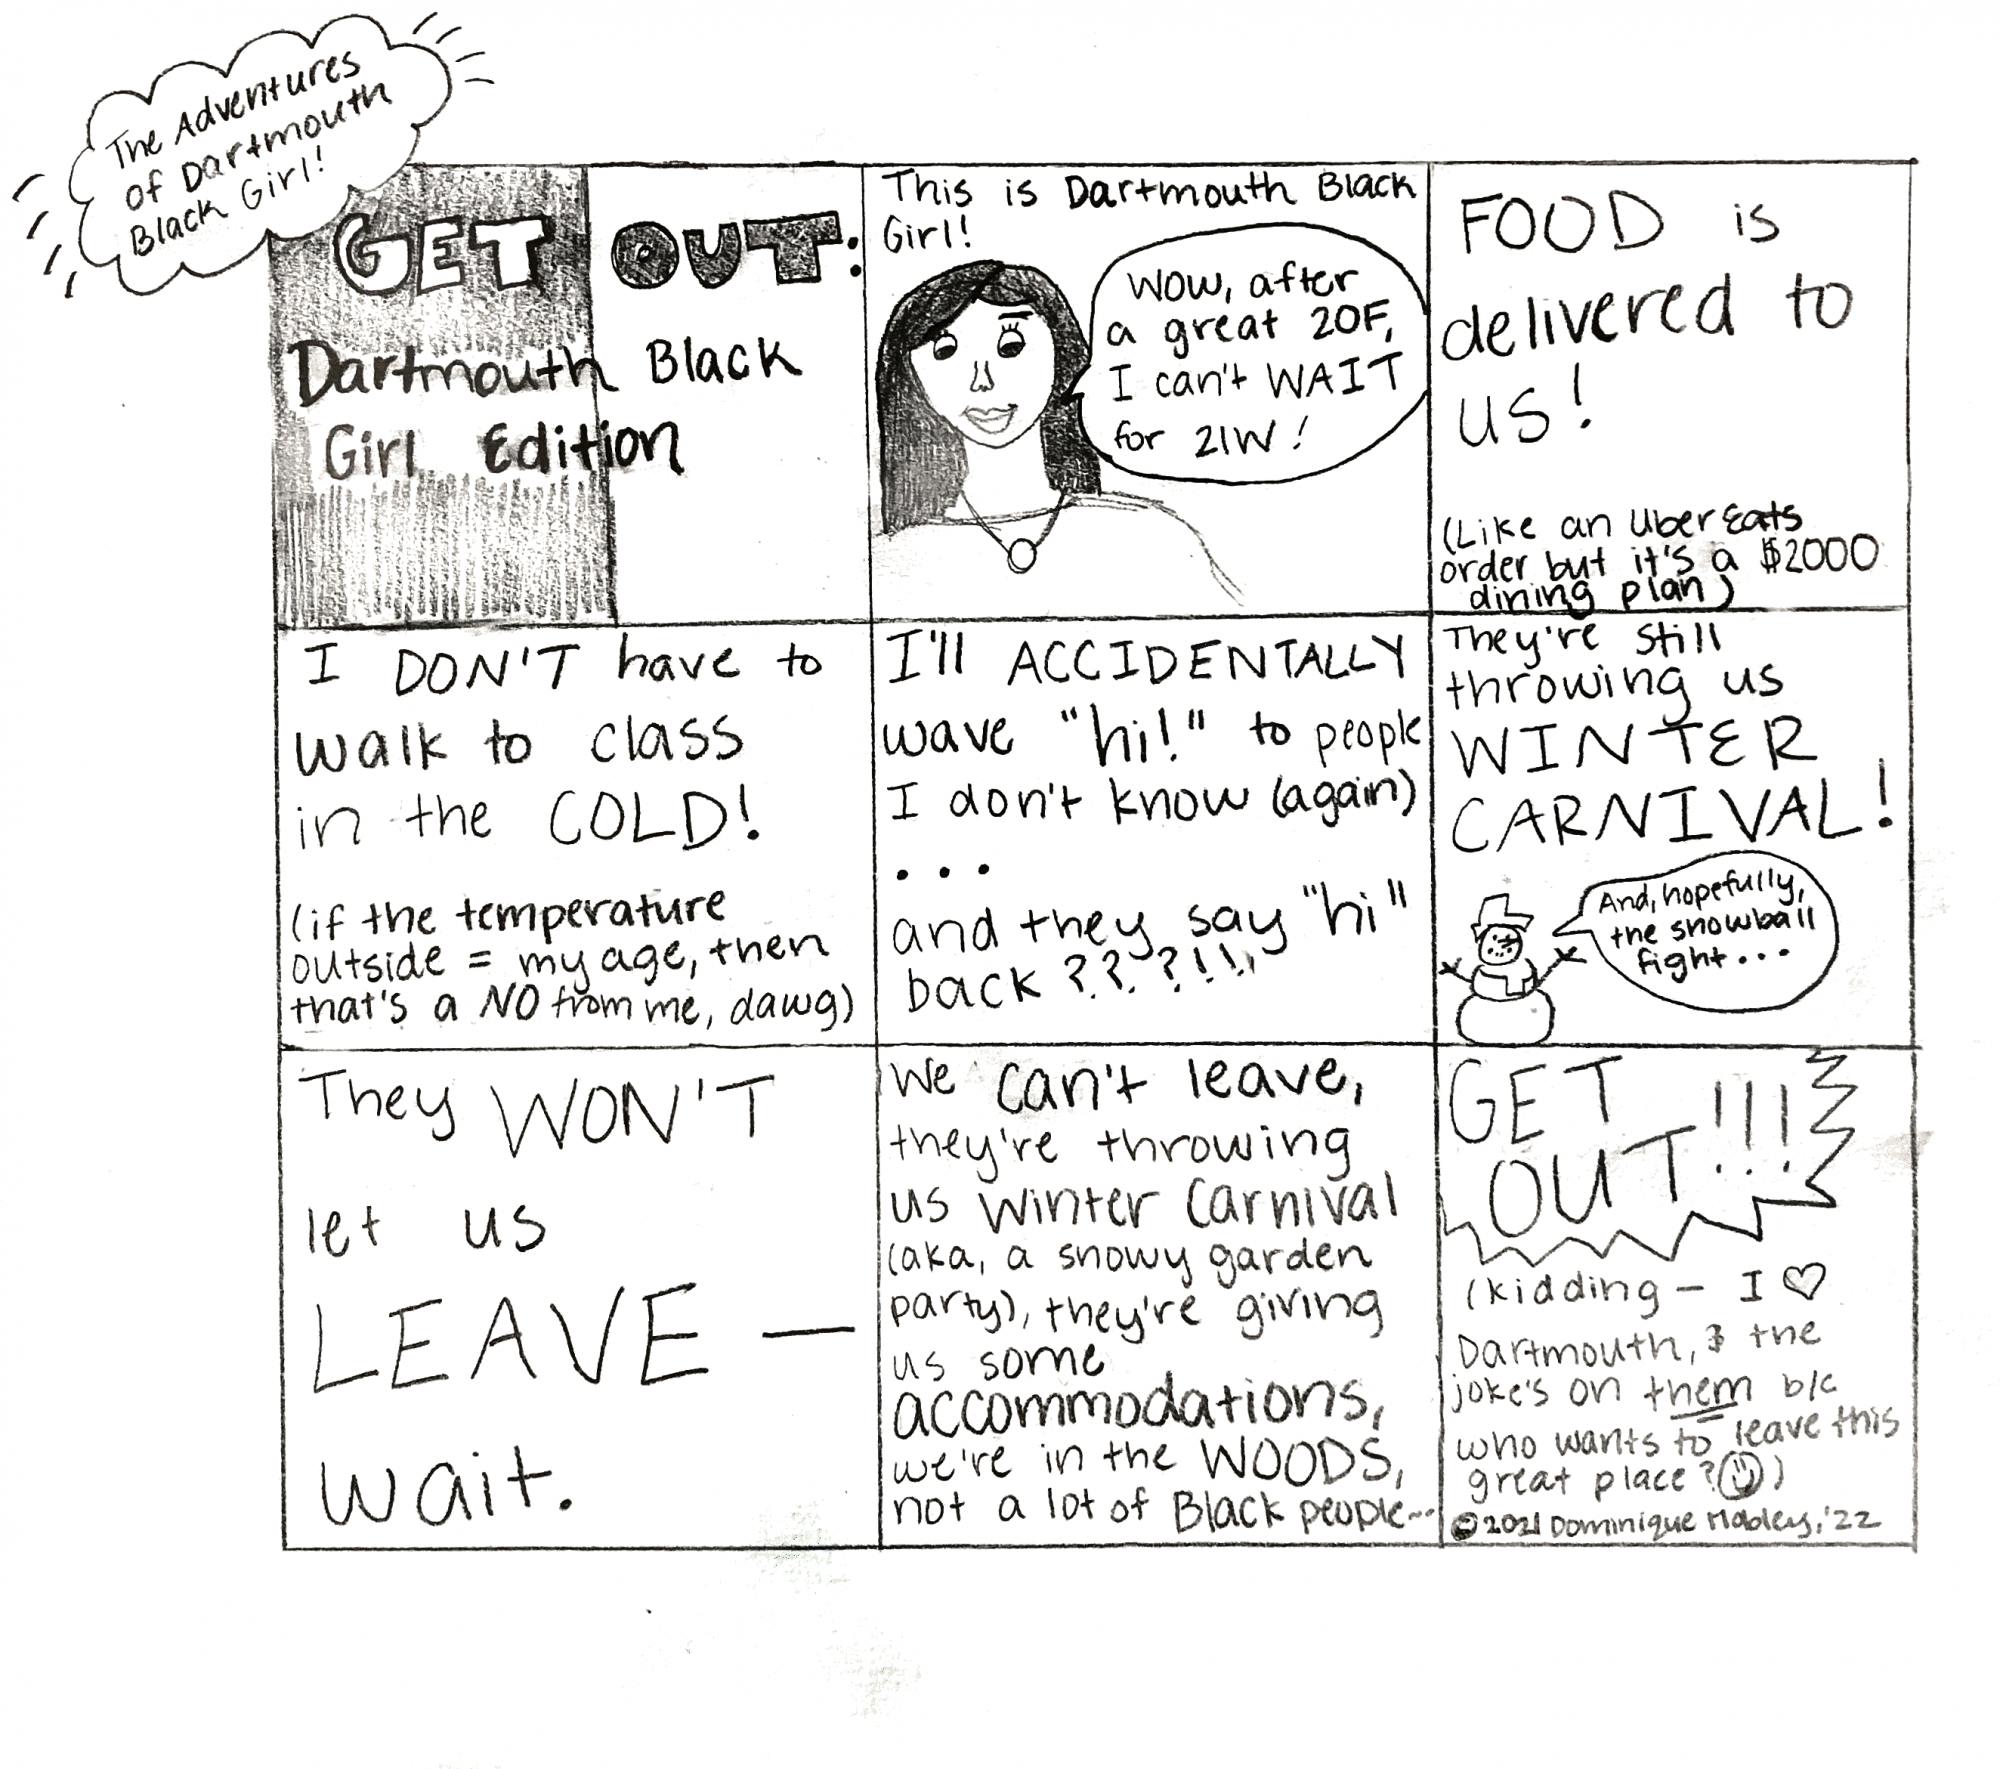 The Adventures
of Dartmouth
Black Girl!
GET OUT:
Dartmouth Black
Girl Edition
This is Dartmouth Black
Girl!
Wow, after
a great 20F,
I can't WAIT
for 21W!
FOOD is
delivered to
us!
(Like an Uber Eats
order but it's a $2000
dining plan)
I DON'T have to
walk to class
in the COLD!
(if the temperature
outside = my age, then
that's a NO from me, dawg)
I'll ACCIDENTALLY
wave "hi!" to people
I don't know (again)
...
and they say "hi"
back????!!!
They're still
throwing us
WINTER
CARNIVAL!
And, hopefully,
the snowball
fight...
They WON'T
let us
LEAVE —
wait.
We can't leave,
they're throwing
us Winter Carnival
(aka, a snowy garden
party), they're giving
us some
accommodations,
we're in the WOODS,
not a lot of Black people...
GET
OUT!!!
(kidding – I ♡
Dartmouth, & the
joke's on them b/c
who wants to leave this
great place? ☺)
© 2021 Dominique Mobley, '22